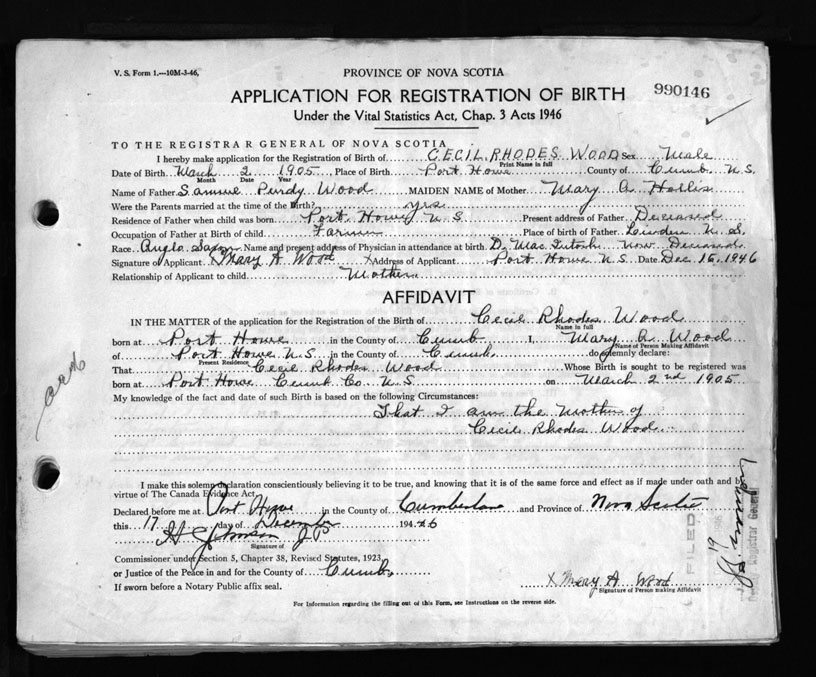 V. S. Form 1.—10M-3-46.
PROVINCE OF NOVA SCOTIA
990146
APPLICATION FOR REGISTRATION OF BIRTH
Under the Vital Statistics Act, Chap. 3 Acts 1946
TO THE REGISTRAR GENERAL OF NOVA SCOTIA
I hereby make application for the Registration of Birth of CECIL RHODES WOOD Sex Male
Print Name in full
Date of Birth March 2 1905 Place of Birth Port Howe County of Cumb. N.S.
Month Date Year
Name of Father Samuel Purdy Wood MAIDEN NAME of Mother Mary A Hollis
Were the Parents married at the time of the Birth? yes
Residence of Father when child was born Port Howe N S Present address of Father Deceased
Occupation of Father at Birth of child Farmer Place of birth of Father Linden N. S.
Race Anglo Saxon Name and present address of Physician in attendance at birth Dr MacIntosh now Deceased
Signature of Applicant X Mary A Wood X Address of Applicant Port Howe N S Date Dec 16, 1946
Relationship of Applicant to child Mother
AFFIDAVIT
IN THE MATTER of the application for the Registration of the Birth of Cecil Rhodes Wood
Name in full
born at Port Howe in the County of Cumb I, Mary A Wood
Name of Person Making Affidavit
of Port Howe N.S. in the County of Cumb. do solemnly declare:
Present Residence
That Cecil Rhodes Wood Whose Birth is sought to be registered was
born at Port Howe Cumb Co. N S on March 2nd 1905
My knowledge of the fact and date of such Birth is based on the following Circumstances:
That I am the Mother of
Cecil Rhodes Wood
I make this solemn declaration conscientiously believing it to be true, and knowing that it is of the same force and effect as if made under oath and by
virtue of The Canada Evidence Act.
Declared before me at Port Howe in the County of Cumberland and Province of Nova Scotia
this 17 day of December 1946
H Johnson J P
Signature of
Commissioner under Section 5, Chapter 38, Revised Statutes, 1923,
or Justice of the Peace in and for the County of Cumb.
If sworn before a Notary Public affix seal.
X Mary A Wood
Signature of Person making Affidavit
For Information regarding the filling out of this Form, see Instructions on the reverse side.
FILED
Deputy Registrar General